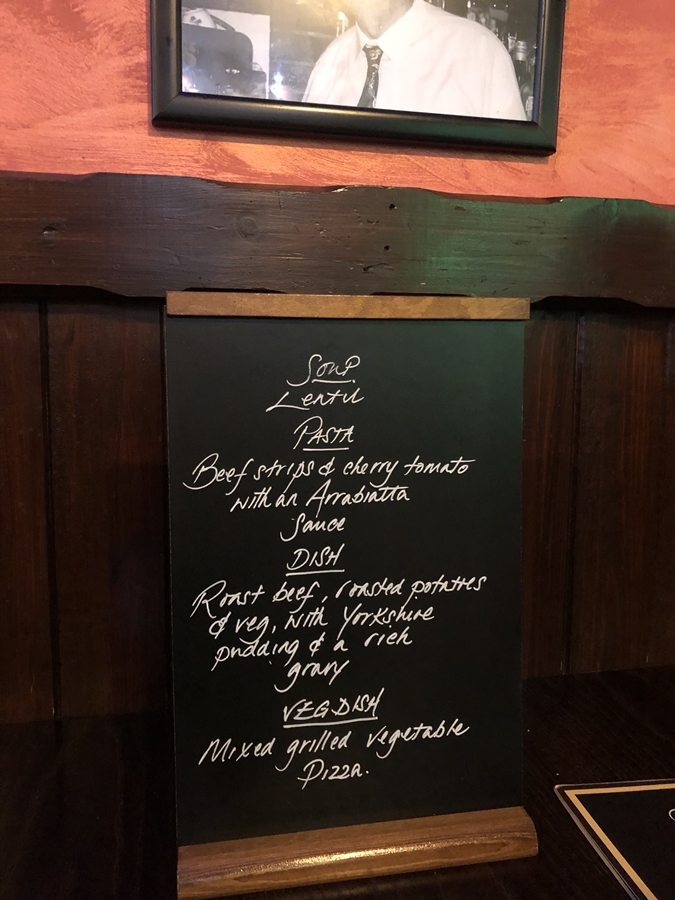 SOUP
Lentil
PASTA
Beef strips & cherry tomato
with an Arrabiatta
Sauce
DISH
Roast beef, roasted potatoes
& veg, with Yorkshire
pudding & a rich
gravy
VEG DISH
Mixed grilled vegetable
Pizza.